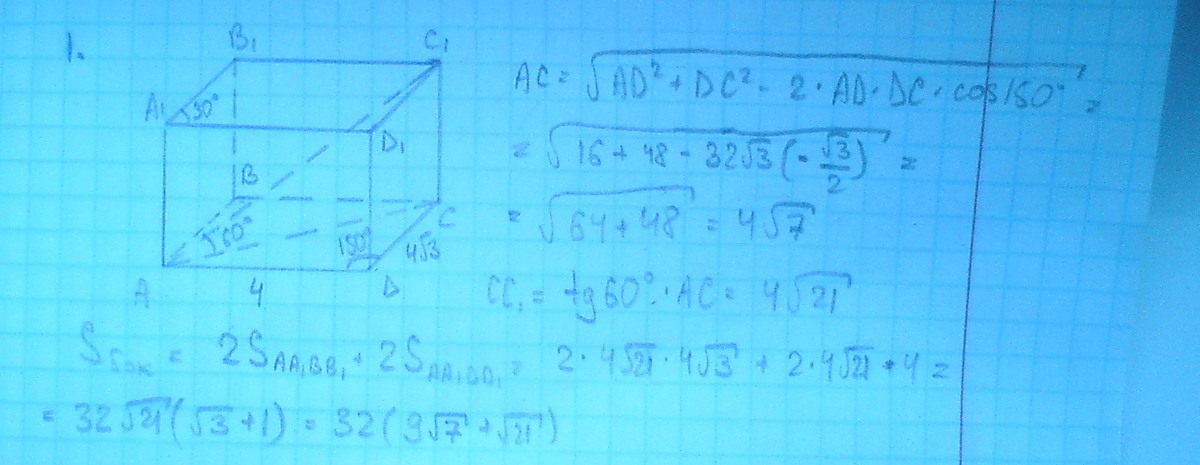 1.
B₁ C₁
A₁ 30° D₁
B C
60° 150° 4√3
A 4 D
AC = √(AD² + DC² - 2·AD·DC·cos150°) =
= √(16 + 48 - 32√3(-√3/2)) =
= √(64+48) = 4√7
CC₁ = tg60°·AC = 4√21
Sбок = 2S_AA₁BB₁ + 2S_AA₁DD₁ = 2·4√21·4√3 + 2·4√21·4 =
= 32√21(√3+1) = 32(9√7+√21)